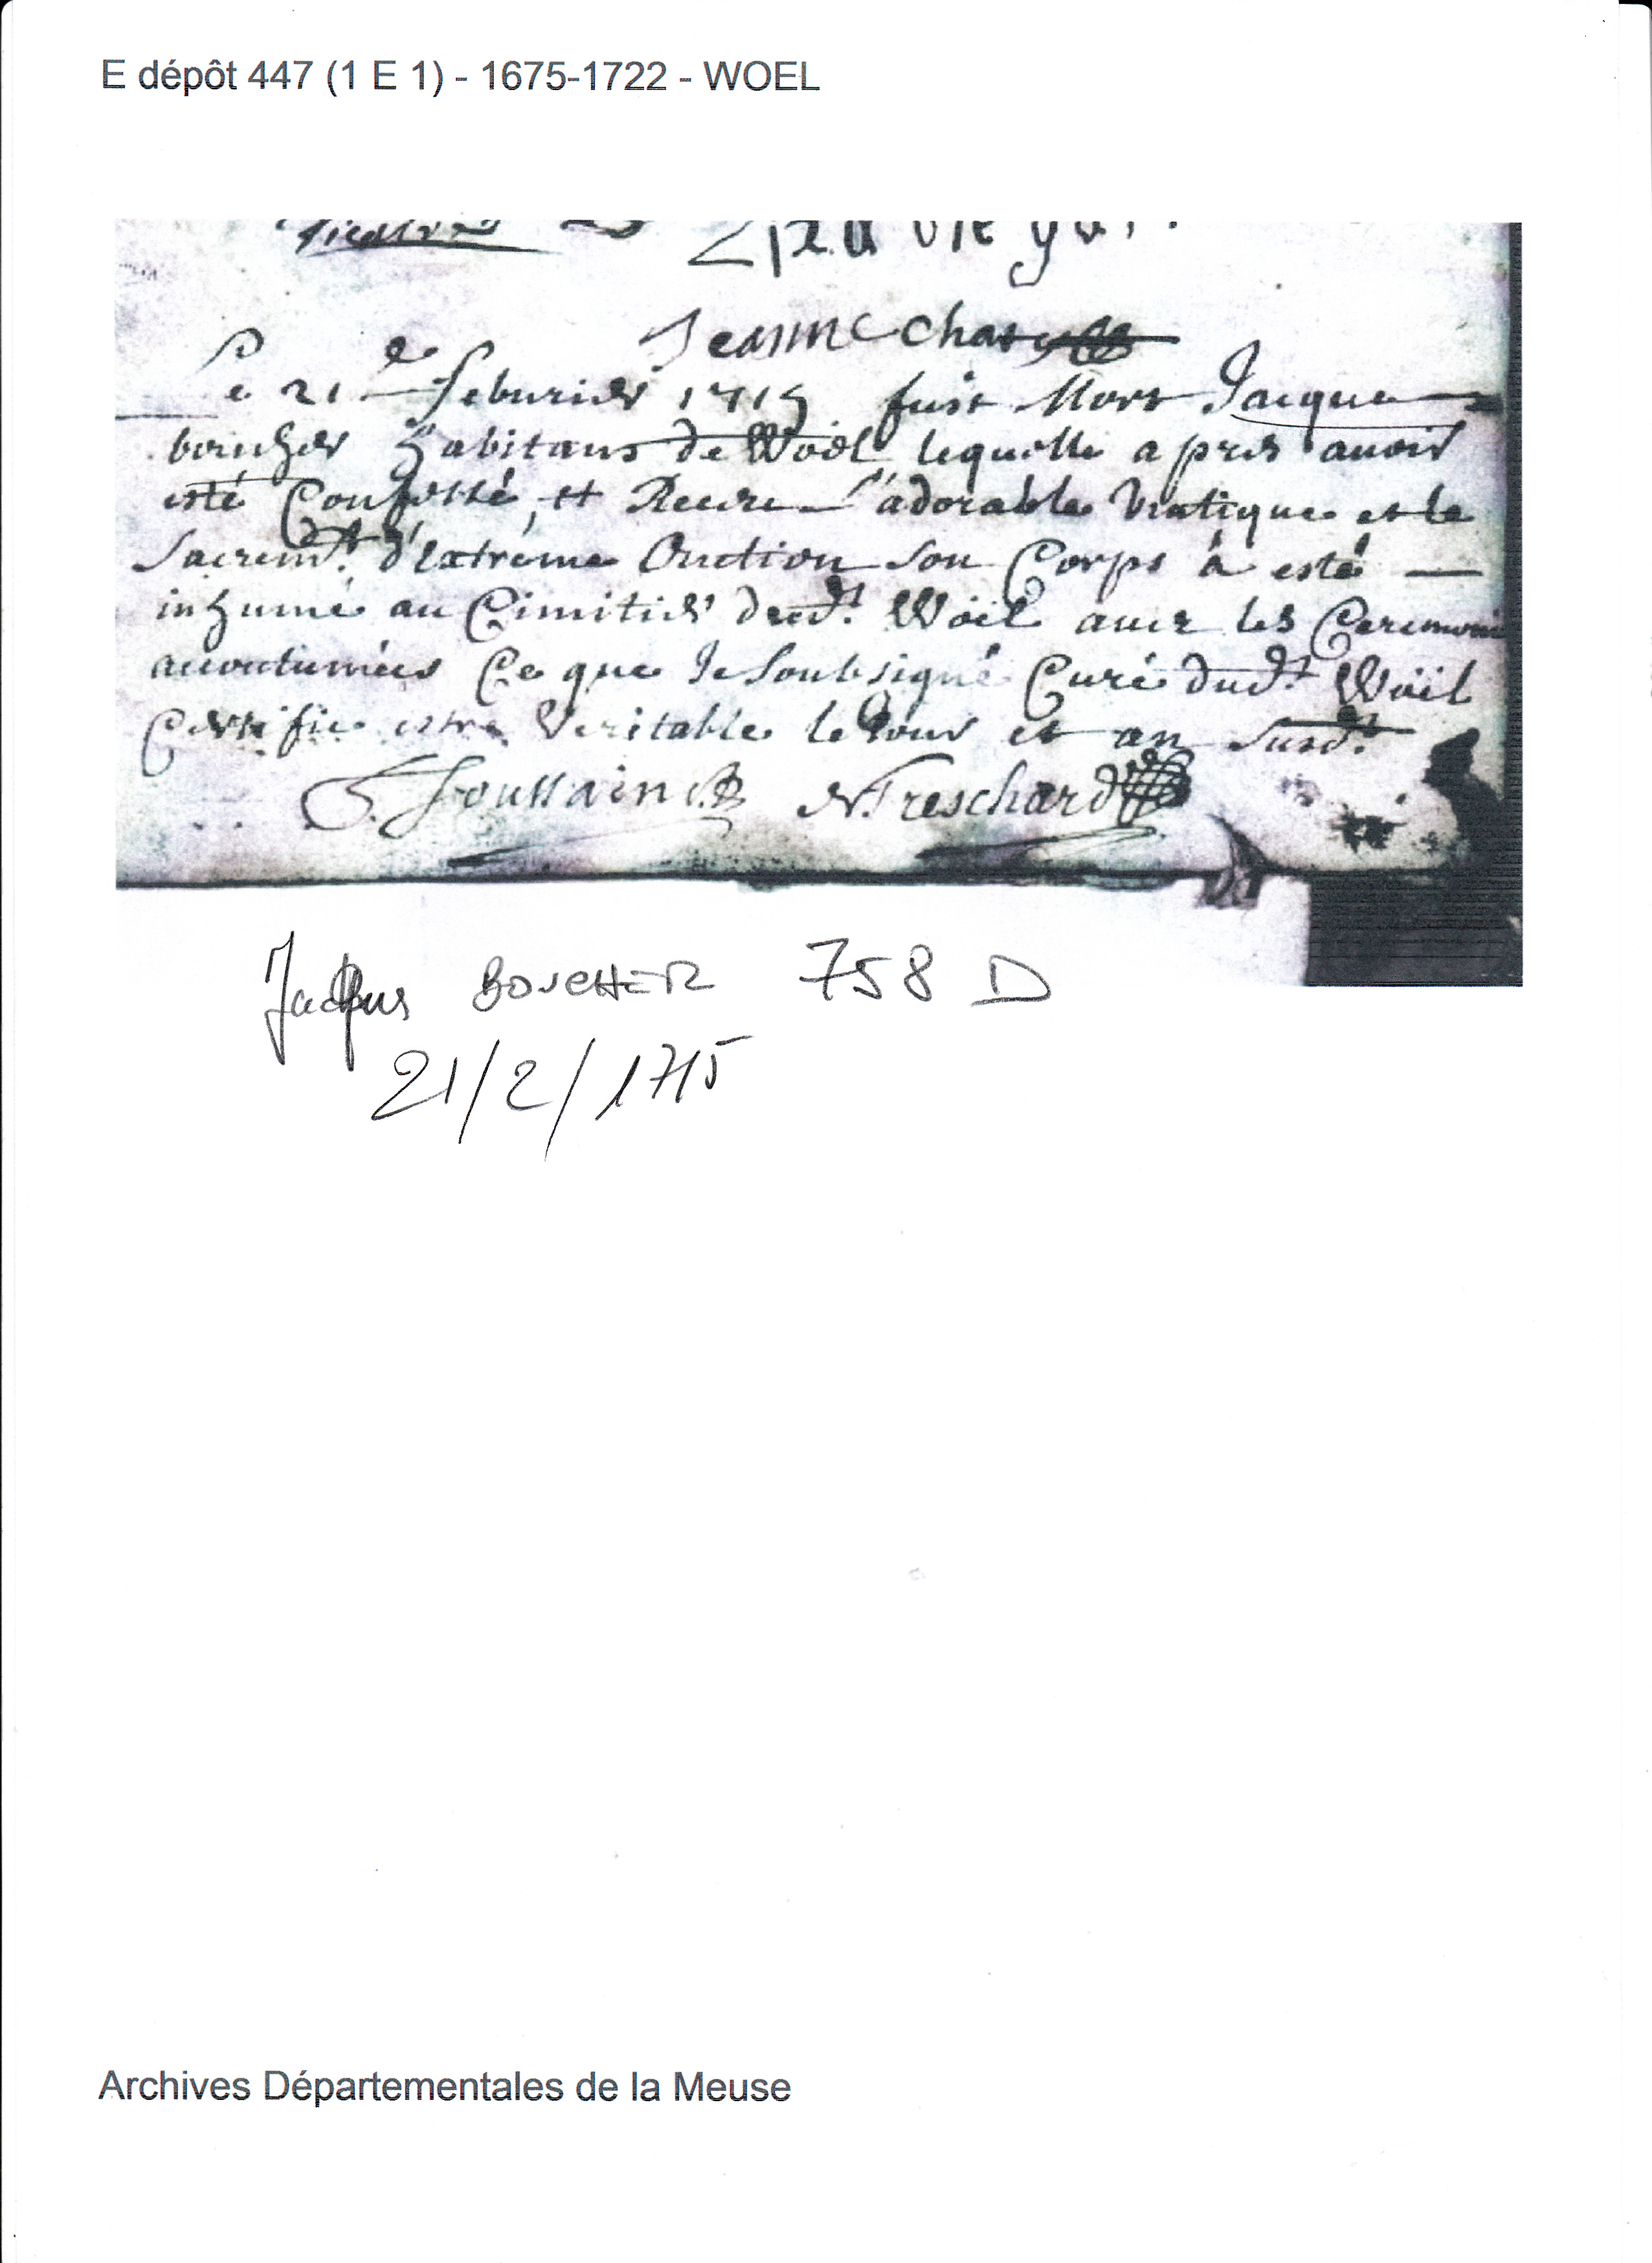 E dépôt 447 (1 E 1) - 1675-1722 - WOEL
Jeanne
Le 21e feburier 1715 fust Mort Jacque
boucher habitans de Woël lequelle apres auoir
esté Confessé, et Receu l'adorable Viatique et le
Sacremt. d'Extreme Onction son Corps à esté —
inhumé au Cimitier dudt. Woël auec les Ceremoni
accoutumées Ce que Je Soubsigné Curé dudt. Woël
Certifie estre Veritable le Jour et an Susdt.
N. Freschard
Jacques BOUCHER 758 D
21/2/1715
Archives Départementales de la Meuse